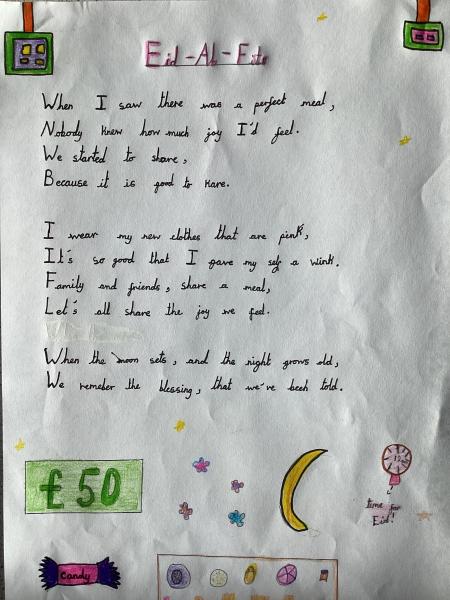 Eid-Al-Fitr
When I saw there was a perfect meal,
Nobody knew how much joy I'd feel.
We started to share,
Because it is good to kare.
I wear my new clothes that are pink,
It's so good that I gave my self a wink.
Family and friends, share a meal,
Let's all share the joy we feel.
When the moon sets, and the night grows old,
We remeber the blessing, that we've been told.
£50
time for
Eid!
Candy